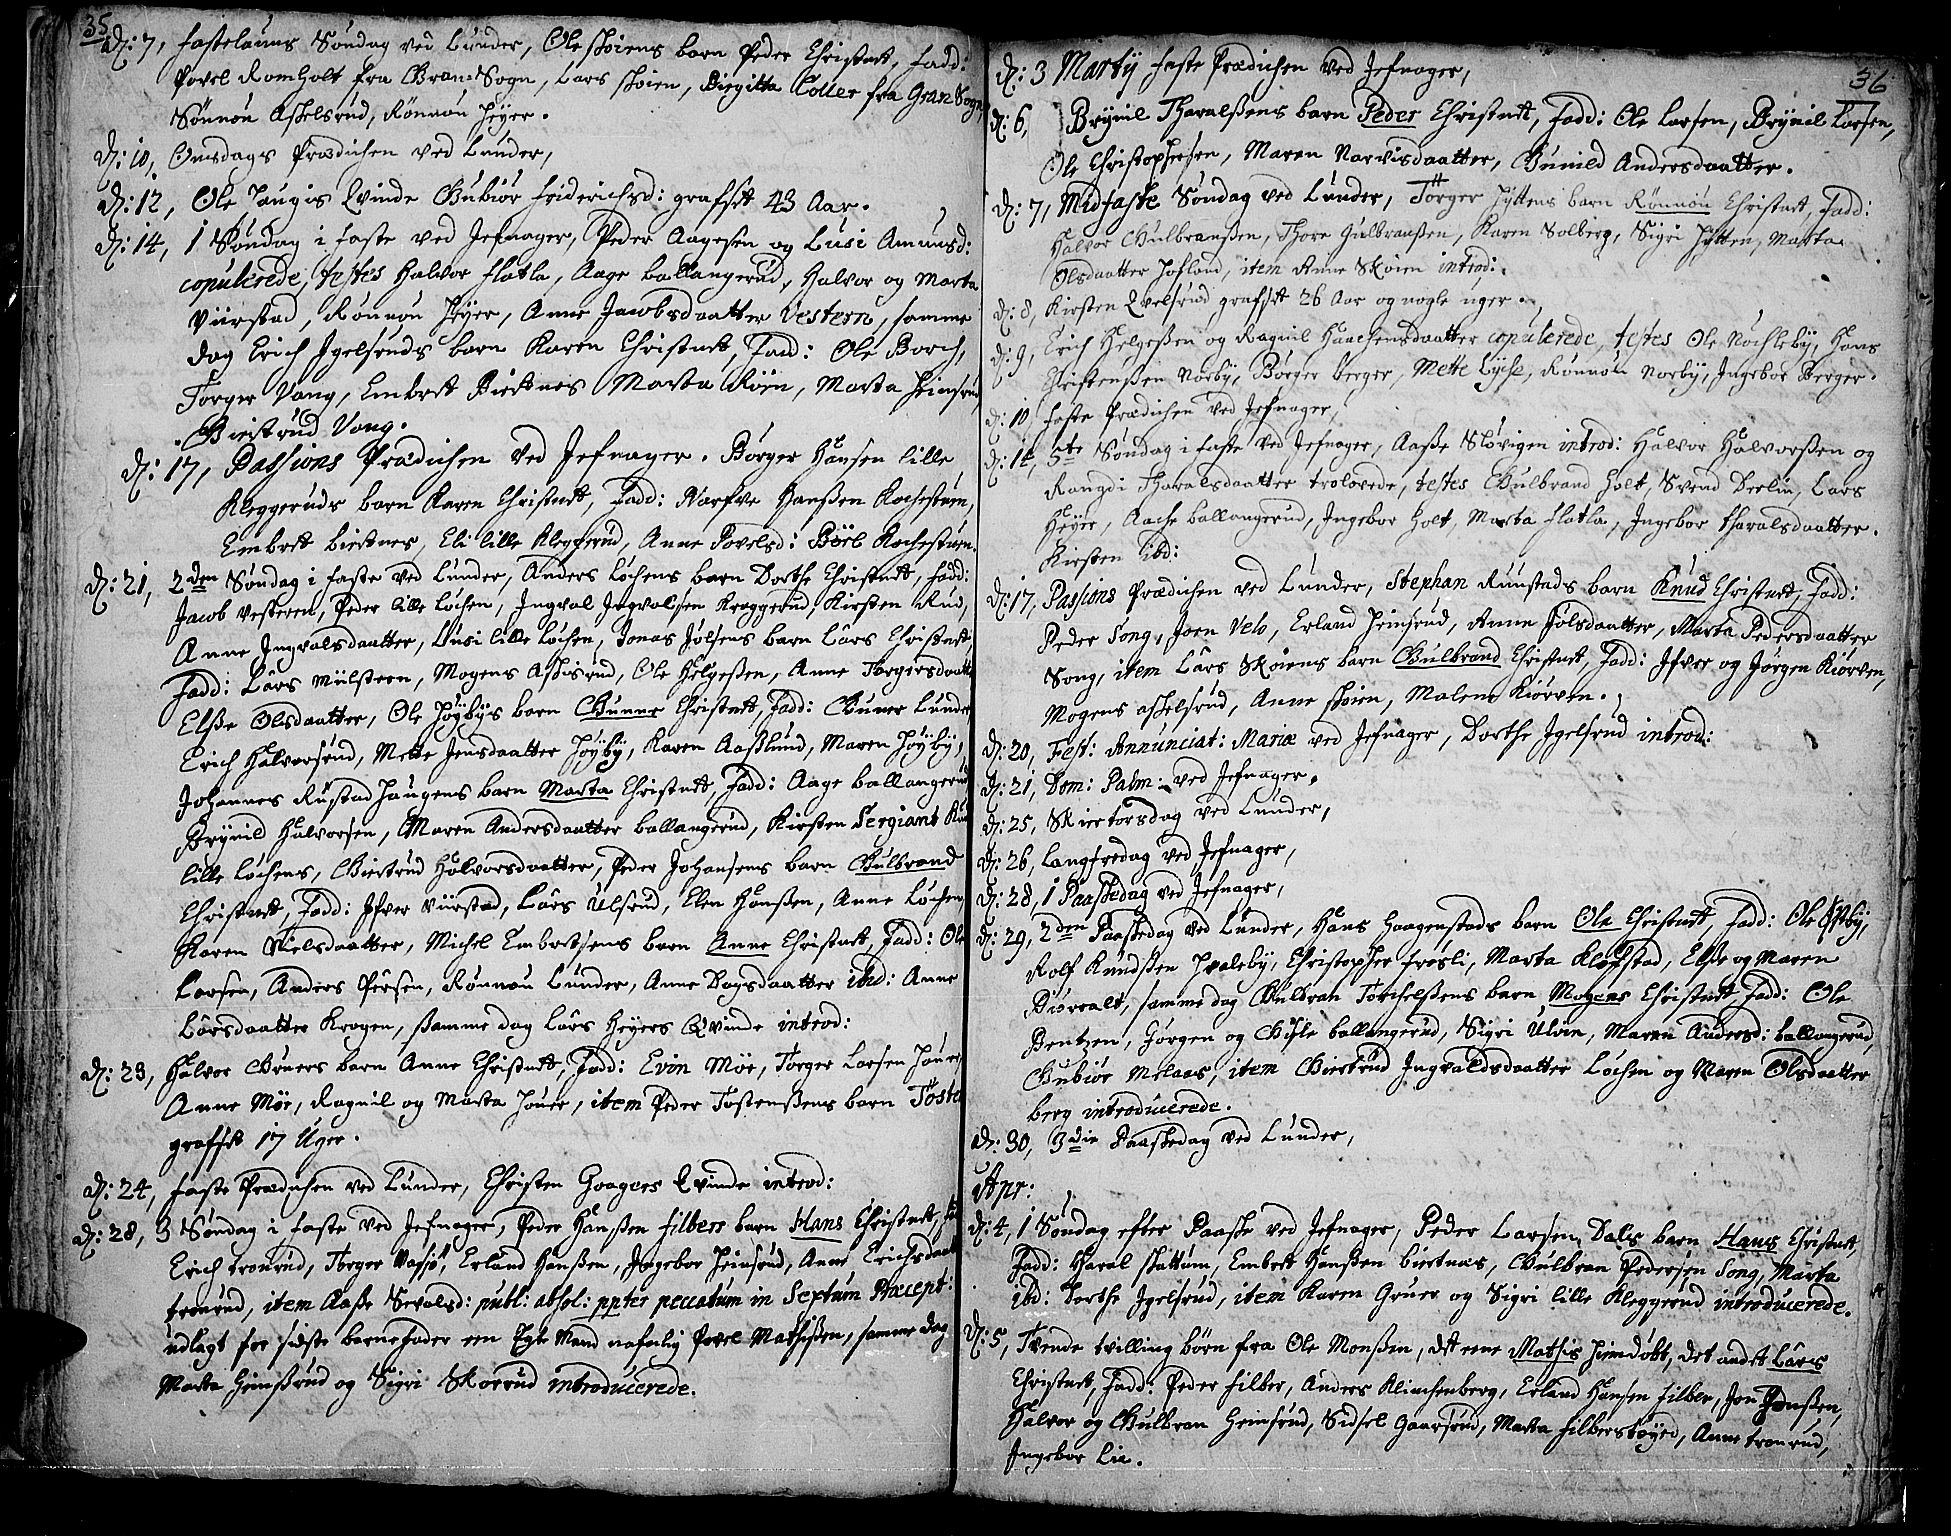 35
d: 7, fastelauns Søndag ved Lunder, Ole skøiens barn Peder Christnet, fadd:
Povel Romholt fra Gran Sogn, Lars skøien, Birgitta Coller fra Gran Sogn,
Sønnou Askelsrud, Rønnou Heyer.
d: 10, Onsdags Prædichen ved Lunder,
d: 12, Ole Haugis Qvinde Gubiør friderichsd: graffset 43 Aar.
d: 14, 1 Søndag i faste ved Jefnager, Peder Aagesen og Lusi Amunsd:
copulerede, testes Halvor flatla, Aage ballangerud, Halvor og Marta
Viirstad, Rønnou Heyer, Anne Jacobsdaatter Vestern, samme
dag Erich Igelsruds barn Karen Christnet, Fadd: Ole Borch,
Torger Vang, Embret Biertnes Marta Røsn, Marta Heimsrud,
Giertrud Vang.
d: 17, Passions Prædichen ved Jefnager. Børger Hansen lille
Kleggeruds barn Karen Christnet, Fadd: Narfve Hanssen Kochestuen,
Embret biertnes, Eli lille Kleggerud, Anne Povelsd: Børl Kochestuen.
d: 21, 2den Søndag i faste ved Lunder, Anders Løchens barn Dorthe Christnet, fadd:
Jacob vesteren, Peder lille Løchen, Ingval Ingvalsen Kroggerud, Kirsten Rud,
Anne Ingvalsdaatter, Lusi lille Løchen, Jonas Jølsens barn Lars Christnet
Fadd: Lars Mulstern, Mogens Askisrud, Ole Helgessen, Anne Torgersdaatter
Elsse Olsdaatter, Ole Høybys barn Gunner Christnet, Fadd: Guner Lunder
Erich Halvorsrud, Mette Jensdaatter Høyby, Karen Aaslund, Maren Høyby,
Johannes Rustad Haugens barn Marta Christnet, Fadd: Aage ballangerud
Brynild Halvorsen, Maren Andersdaatter ballangerud, Kirsten Sergiant
lille Løchens, Giertrud Halvorsdaatter, Peder Johansens barn Gulbrand
Christnet, Fadd: Ifver viirstad, Lars Ulsrud, Elen Hanssen, Anne Løchen
Karen Nielsdaatter, Michel Embretsens barn Anne Christnet, Fadd: Ole
Larsen, Anders Persen, Rønnou Lunder, Anne Dagsdaatter ibid: Anne
Larsdaatter Krogen, samme dag Lars Heyers Qvinde introd:
d: 23, Halvor Gruers barn Anne Christnet, Fadd: Evin Møe, Torger Larsen Houer,
Anne Møe, Ragnil og Marta Houer, item Peder Tostenssens barn Tosten
graffset 17 Uger.
d: 24, faste Prædichen ved Lunder, Christen Goagers Qvinde introd:
d: 28, 3 Søndag i faste ved Jefnager, Peder Hanssen filbers barn Hans Christnet,
Erich tronrud, Torger Vassø, Erland Hanssen, Ingebor Heimsrud, Anne Erichsdaatter
tronrud, item Aasse Sevalsd: publ: absol: ppter peccatum in Sextum Præcept:
udlagt for sidste barnefader een Egte Mand nafnlig Povel Mathissen, samme dag
Marta Heimssrud og Sigri Skorrud introducerede.
36
d: 3 Martij faste Prædichen ved Jefnager,
d: 6, Brynil Tharalssens barn Peder Christnet, Fadd: Ole Larsen, Brynil Larsen,
Ole Christophersen, Maren Narvisdaatter, Gunild Andersdaatter.
d: 7, Midfaste Søndag ved Lunder, Torger Hyttens barn Rønnou Christnet, Fadd:
Halvor Gulbranssen, Thore Gulbranssen, Karen Solberg, Sigri Hytten, Marta
Olsdaatter Hofland, item Anne Skøien introd:
d: 8, Kirsten Qvelsrud graffset 26 Aar og nogle uger.
d: 9, Erich Helgessen og Ragnil Haachensdaatter copulerede, testes Ole Nochleby, Hans
Christenssen Norby, Børger berger, Mette Lyse, Rønnou Norby, Ingebor Berger.
d: 10 faste Prædichen ved Jefnager,
d: 14, 5te Søndag i faste ved Jefnager, Aasse Sløvigen introd: Halvor Halvorssen og
Rangdi Tharalsdaatter trolovede, testes Gulbrand Holt, Svend Deelin, Lars
Heyer, Aache ballangerud, Ingebor Holt, Marta flatla, Ingebor tharalsdaatter.
Kirsten ibd:
d: 17, Passions Prædichen ved Lunder, Stephan Runstads barn Knud Christnet, Fadd:
Peder Song, Joen Velo, Erland Heimsrud, Anne Jølsdaatter, Marta Pedersdaatter
Song, item Lars Skøiens barn Gulbrand Christnet, Fadd: Ifver og Jørgen Kiørven,
Mogens askelsrud, Anne skøien, Malene Kiørven.
d: 20, Fest: Annunciat: Mariæ ved Jefnager, Dorthe Igelsrud introd:
d: 21, Dom: Palm: ved Jefnager.
d: 25, Skiertorsdag ved Lunder,
d: 26, Langfredag ved Jefnager,
d: 28, 1 Paaskedag ved Jefnager,
d: 29, 2den Paaskedag ved Lunder, Hans Haagenstads barn Ole Christnet, Fadd: Ole Opby,
Rolf Knudssen Hvaleby, Christopher frøsli, Marta Klæfstad, Else og Maren
Biørvalt, samme dag Gulbran Torchelssens barn Mogens Christnet, Fadd: Ole
Bentzen, Jørgen og Gisle ballangerud, Sigri Ulvin, Maren Andersd: ballangerud,
Gubiør Melaas, item Giertrud Ingvaldsdaatter Løchen og Maren Olsdaatter
berg introducerede.
d: 30, 3die Paaskedag ved Lunder,
Apr:
d: 4, 1 Søndag efter Paaske ved Jefnager, Peder Larsen Dals barn Hans Christnet,
Fadd: Haral skattum, Embret Hanssen biertnæs, Gulbran Pedersen Song, Marta
ibd: Dorthe Igelsrud, item Karen Gruer og Sigri lille Kleggerud introducerede.
d: 5, Tvende tvilling børn fra Ole Monssen, det eene Mathis hiemdøbt, det andet Lars
Christnet, Fadd: Peder filber, Anders Klinchenberg, Erland Hansen filber, Jon Hanssen,
Halvor og Gulbran Heimsrud, Sidsel Gaarsrud, Marta filberskøyed, Anne tronrud,
Ingebor Lie.